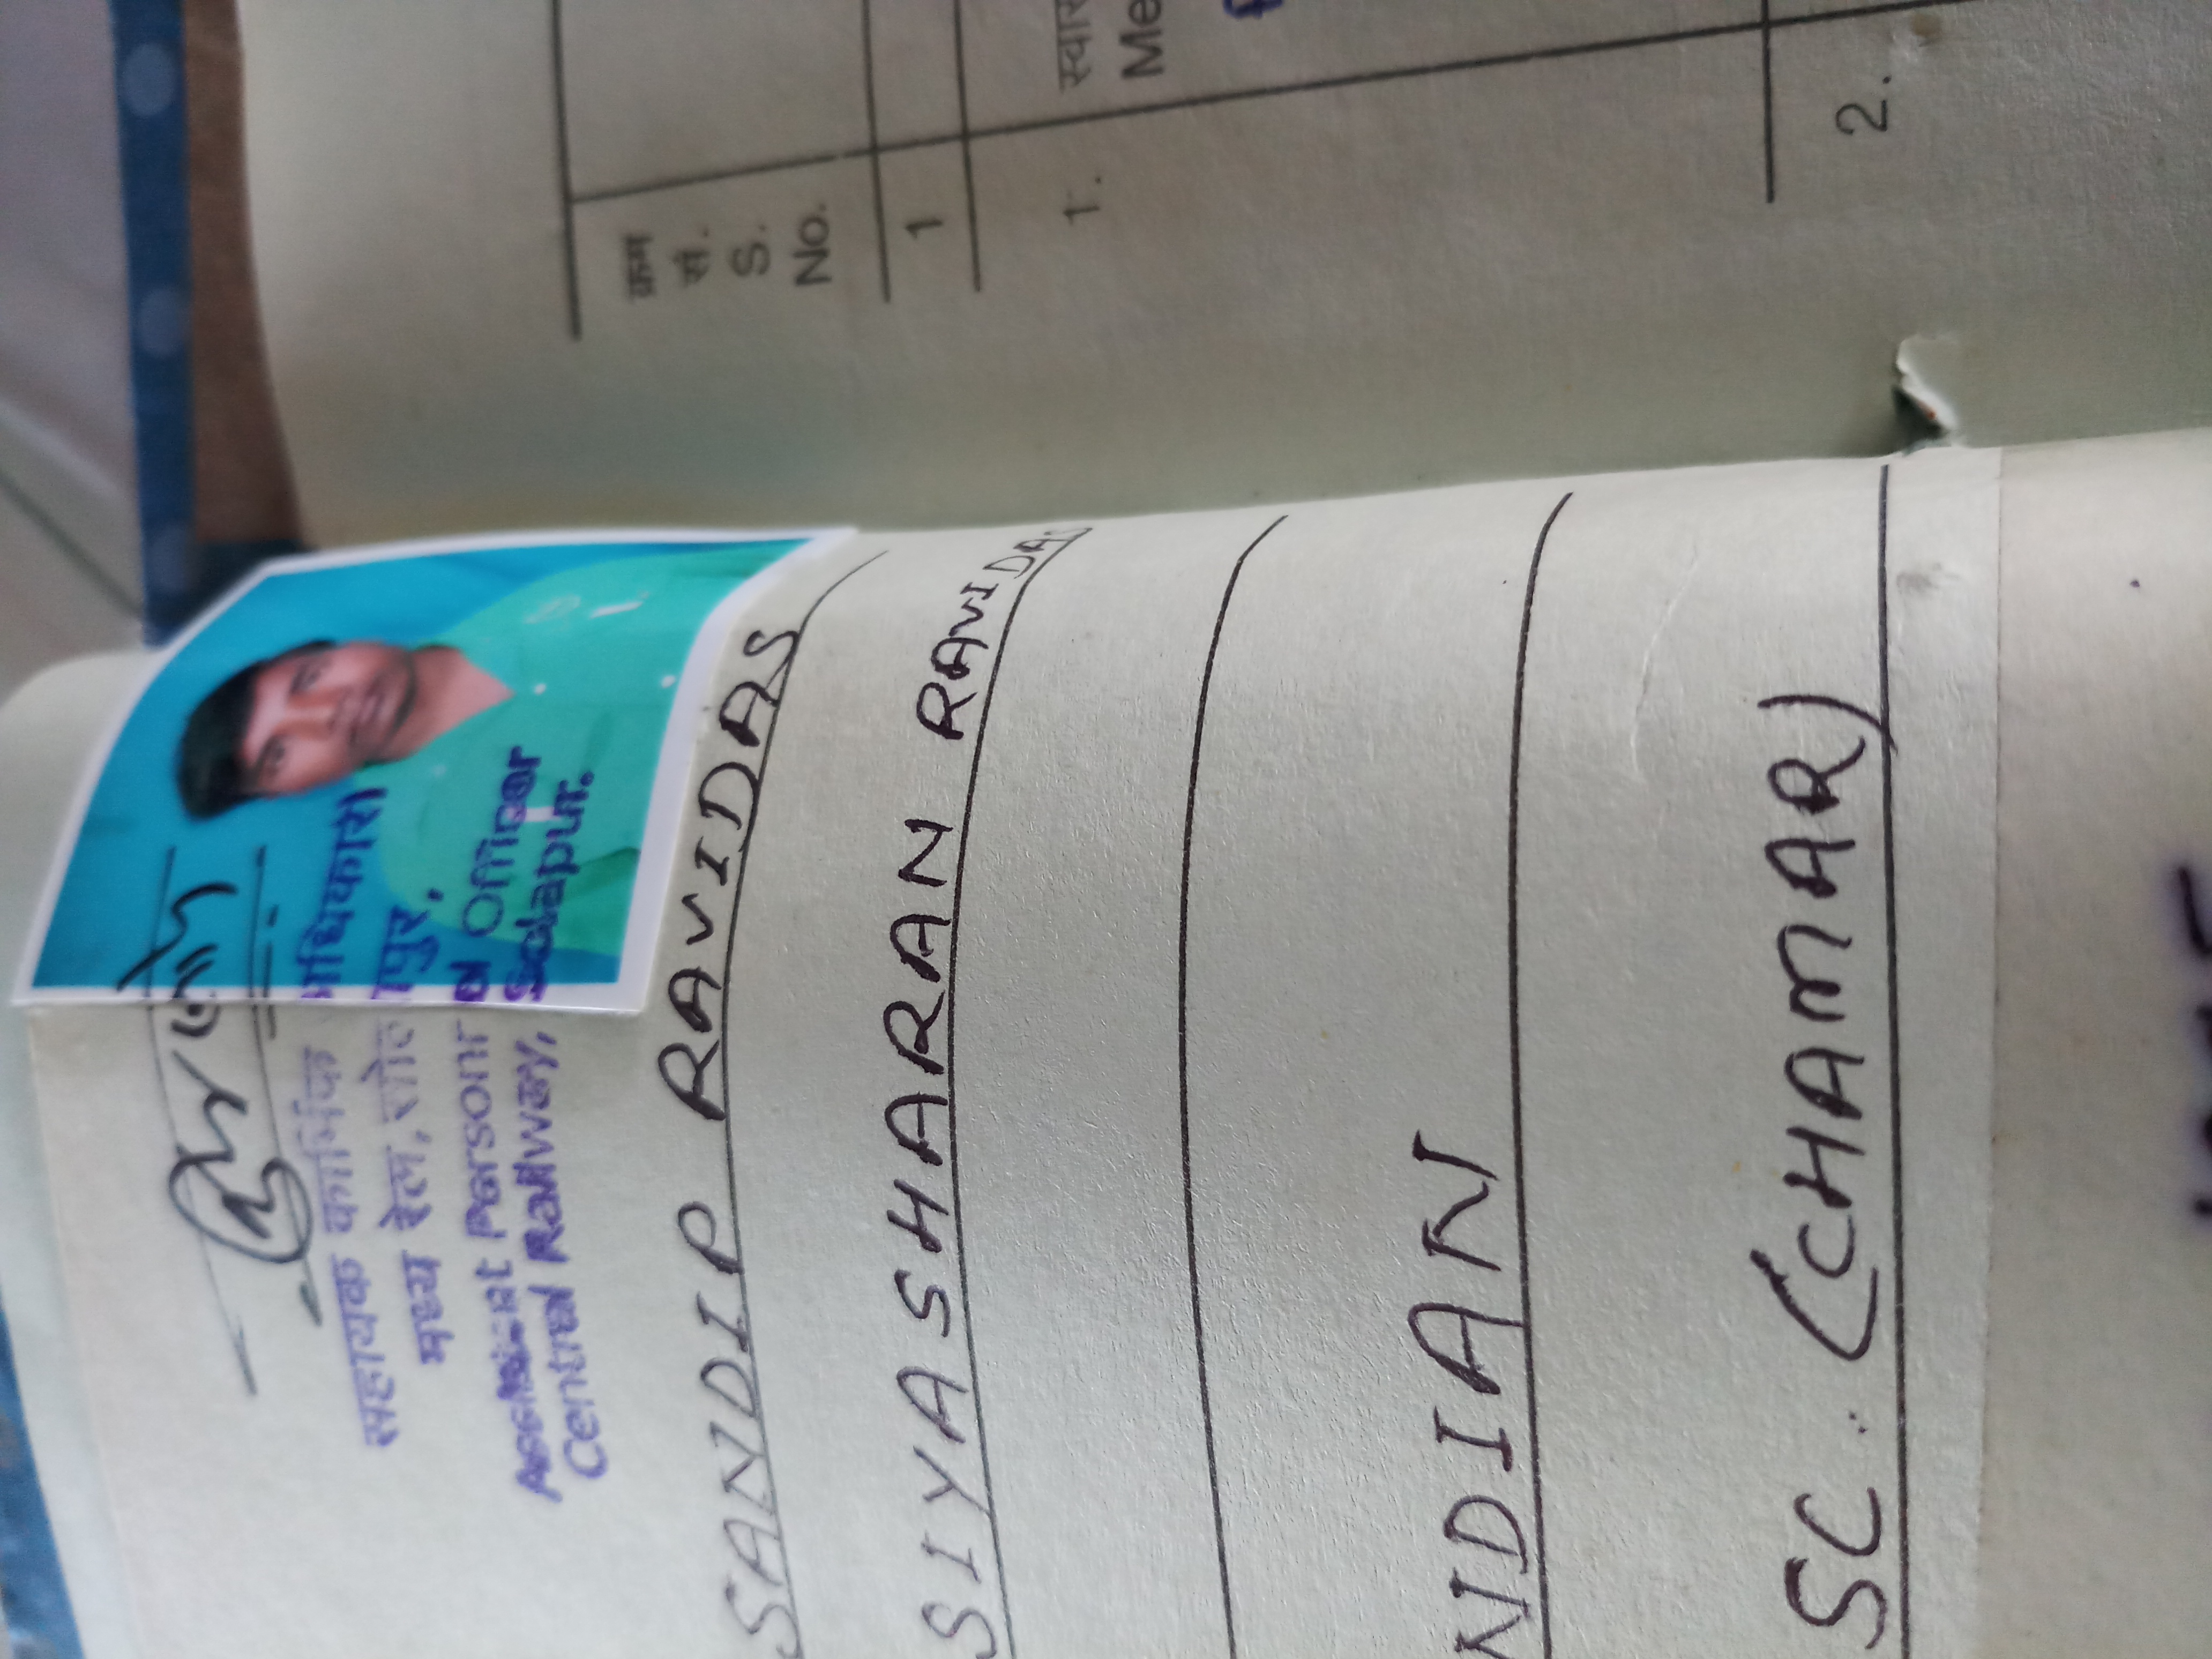 सहायक कार्मिक अधिकारी
मध्य रेल, सोलापुर,
Assistant Personnel Officer
Central Railway, Solapur.
SANDIP RAVIDAS
SIYASHARAN RAVIDAS
NDIAN
SC. (CHAMAR)
क्रम
सं.
S.
No.
1
1.
स्वास
Me
2.